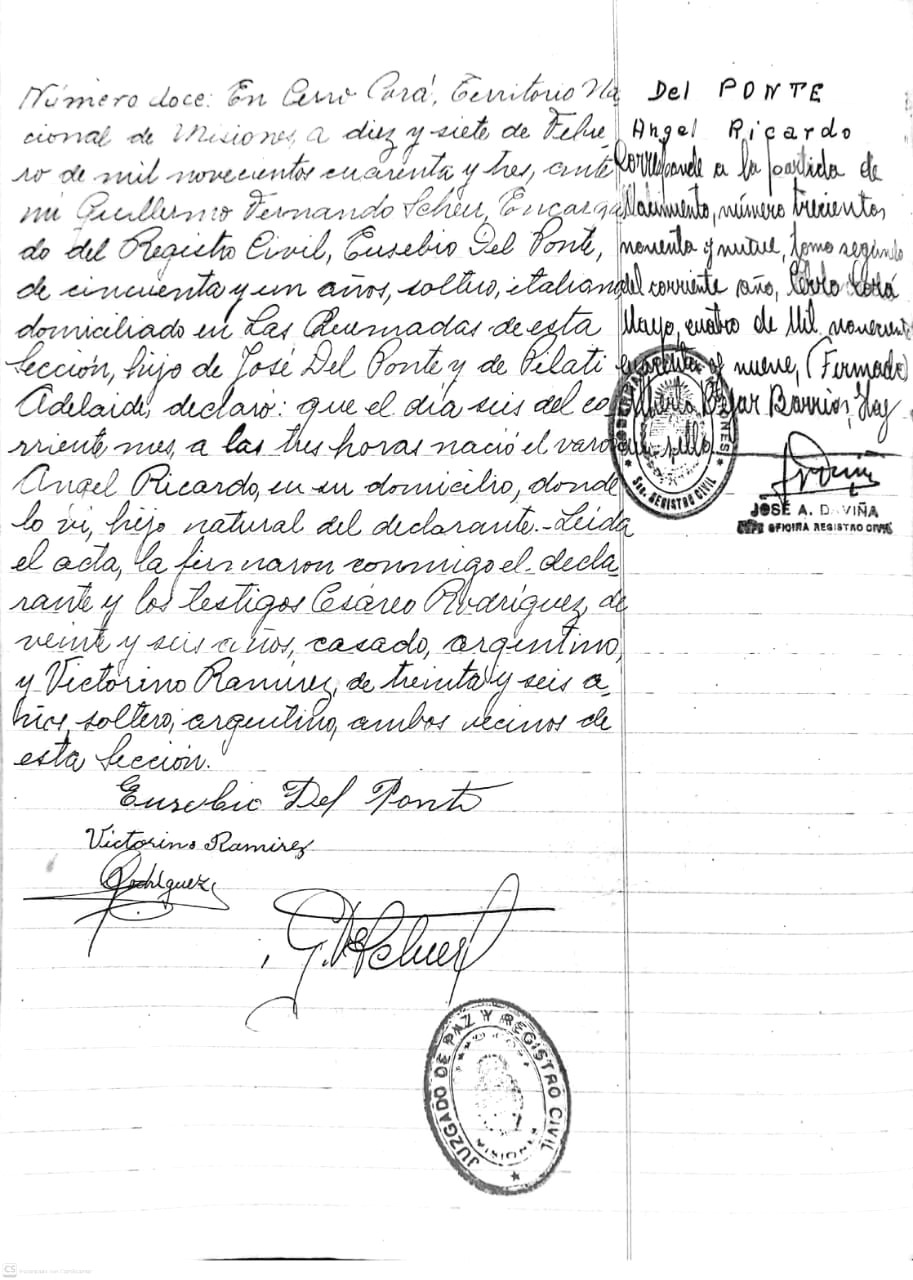 Número doce: En Cerro Corá, Territorio Na
cional de Misiones, a diez y siete de Febre-
ro de mil novecientos cuarenta y tres, ante
mi Guillermo Fernando Scheu, Encarga
do del Registro Civil, Eusebio Del Ponte,
de cincuenta y un años, soltero, italiano
domiciliado en Las Quemadas de esta
Sección, hijo de José Del Ponte y de Pilati
Adelaide, declaró: que el día seis del co
rriente mes, a las tres horas nació el varon
Angel Ricardo, en su domicilio, donde
lo vi, hijo natural del declarante.- Leida
el acta, la firmaron conmigo el decla-
rante y los testigos Cesáreo Rodríguez, de
veinte y seis años, casado, argentino,
y Victorino Ramirez, de treinta y seis a-
ños, soltero, argentino, ambos vecinos de
esta Sección.
Eusebio Del Ponte
Victorino Ramirez
Rodríguez
JUZGADO DE PAZ Y REGISTRO CIVIL
MISIONES
Del PONTE
Angel Ricardo
Corresponde a la partida de
Nacimiento, número trecientos
noventa y nueve, tomo segundo
del corriente año, Cerro Corá
Mayo, cuatro de Mil novecientos
cuarenta y nueve, (Firmado)
Barrios, Hay
un sello
SEC. REGISTRO CIVIL
JOSÉ A. DAVIÑA
OFICINA REGISTRO CIVIL
CS